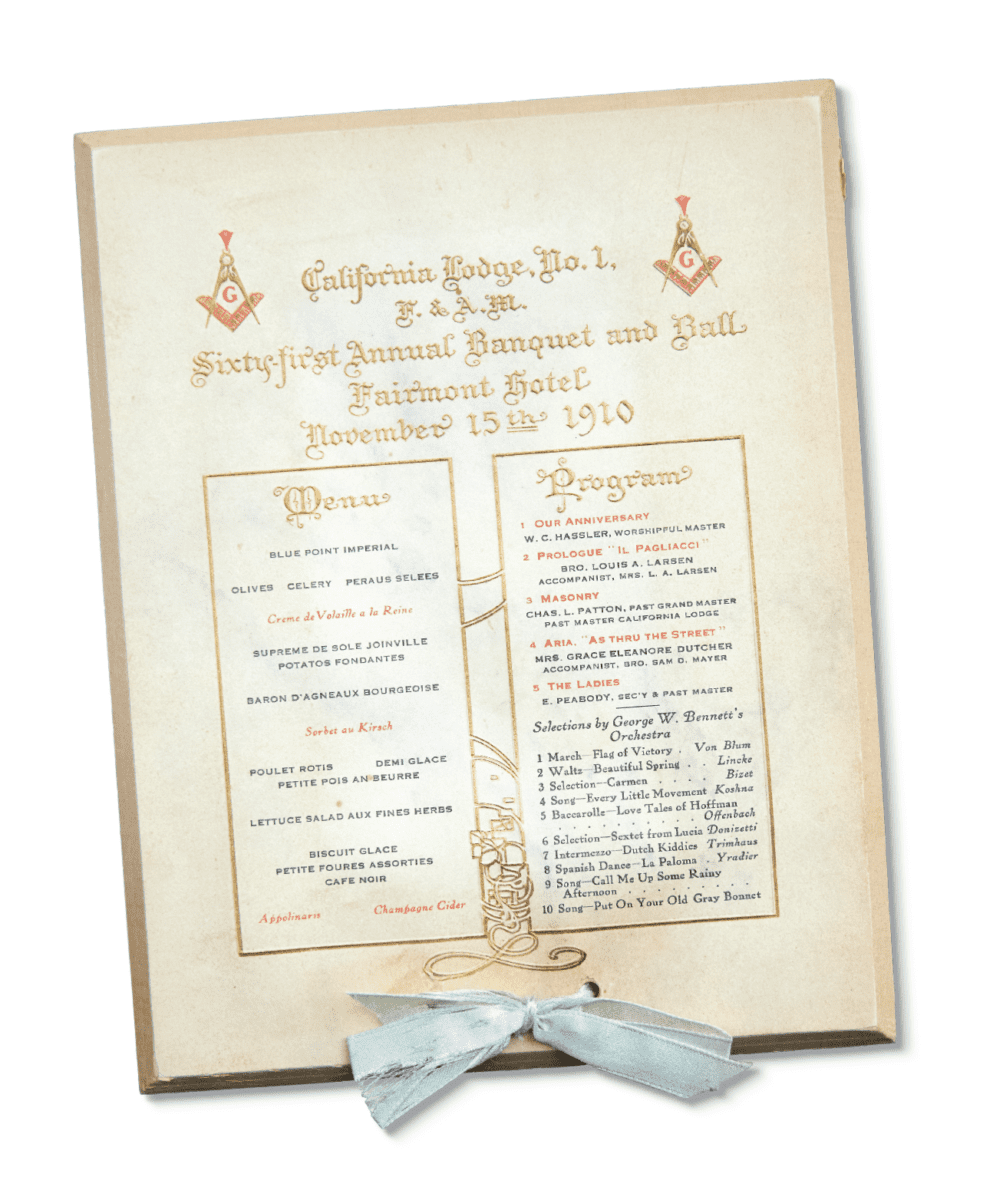 G
G
California Lodge, No. 1,
F. & A.M.
Sixty-first Annual Banquet and Ball
Fairmont Hotel
November 15th 1910
Menu
BLUE POINT IMPERIAL
OLIVES CELERY PERAUS SELEES
Creme de Volaille a la Reine
SUPREME DE SOLE JOINVILLE
POTATOS FONDANTES
BARON D'AGNEAUX BOURGEOISE
Sorbet au Kirsch
POULET ROTIS DEMI GLACE
PETITE POIS AN BEURRE
LETTUCE SALAD AUX FINES HERBS
BISCUIT GLACE
PETITE FOURES ASSORTIES
CAFE NOIR
Appolinaris Champagne Cider
Program
1 OUR ANNIVERSARY
W. C. HASSLER, WORSHIPFUL MASTER
2 PROLOGUE "IL PAGLIACCI"
BRO. LOUIS A. LARSEN
ACCOMPANIST, MRS. L. A. LARSEN
3 MASONRY
CHAS. L. PATTON, PAST GRAND MASTER
PAST MASTER CALIFORNIA LODGE
4 ARIA, "AS THRU THE STREET"
MRS. GRACE ELEANORE DUTCHER
ACCOMPANIST, BRO. SAM D. MAYER
5 THE LADIES
E. PEABODY, SEC'Y & PAST MASTER
Selections by George W. Bennett's
Orchestra
1 March—Flag of Victory . Von Blum
2 Waltz—Beautiful Spring . . Lincke
3 Selection—Carmen . . . . Bizet
4 Song—Every Little Movement Koshna
5 Baccarolle—Love Tales of Hoffman
. . . . . . . . . . Offenbach
6 Selection—Sextet from Lucia Donizetti
7 Intermezzo—Dutch Kiddies Trimhaus
8 Spanish Dance—La Paloma . Yradier
9 Song—Call Me Up Some Rainy
Afternoon . . . . . . . . .
10 Song—Put On Your Old Gray Bonnet